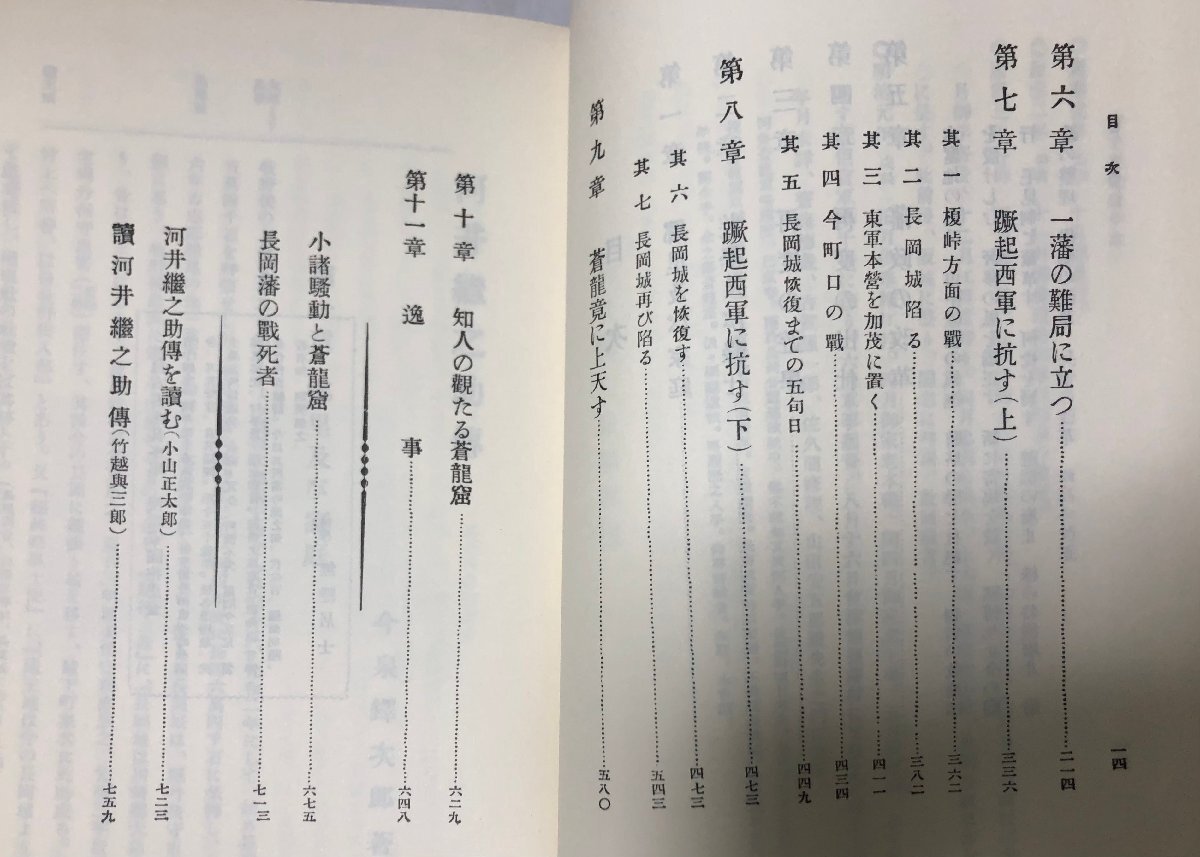 目次
一四
第六章 一藩の難局に立つ…二一四
第七章 蹶起西軍に抗す(上)…三三六
其一 榎峠方面の戰…三六二
其二 長岡城陷る…三八二
其三 東軍本營を加茂に置く…四一一
其四 今町口の戰…四三四
其五 長岡城恢復までの五旬日…四四九
第八章 蹶起西軍に抗す(下)…四七三
其六 長岡城を恢復す…四七三
其七 長岡城再び陷る…五四三
第九章 蒼龍竟に上天す…五八〇
第十章 知人の觀たる蒼龍窟…六二九
第十一章 逸事…六四八
小諸騷動と蒼龍窟…六七五
長岡藩の戰死者…七一三
河井繼之助傳を讀む(小山正太郎)…七二三
讀河井繼之助傳(竹越與三郎)…七五九